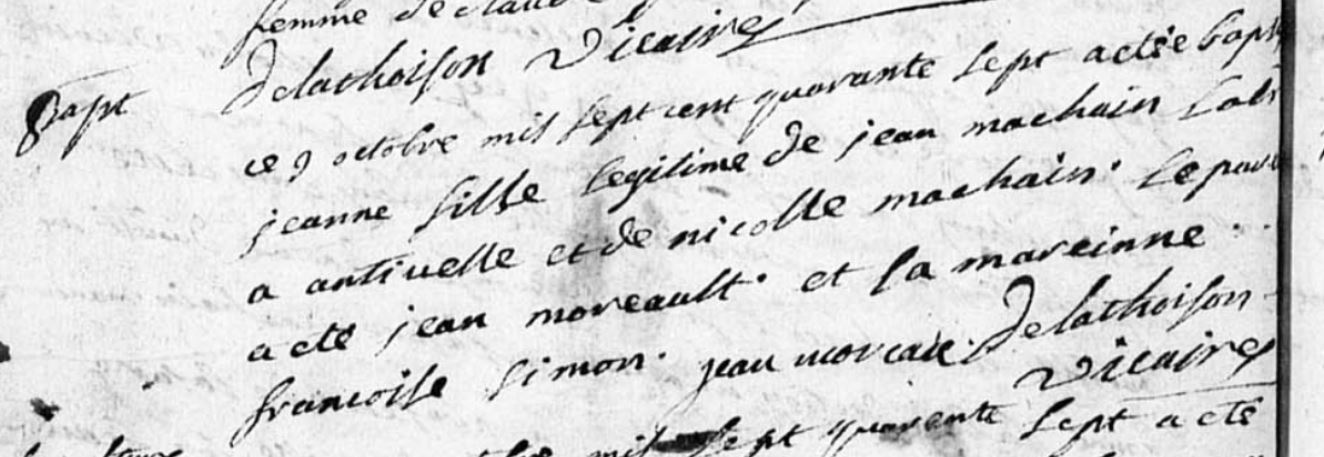 femme de claude
Delathoison vicaire
Bapt
ce 9 octobre mil sept cent quarante sept a eté bapt
jeanne fille legitime de jean machain lab
a antivelle et de nicolle machain. le par
a eté jean moreault. et la mareinne
francoise simon. jean moreau. Delathoison
vicaire
mil sept quarente sept a eté